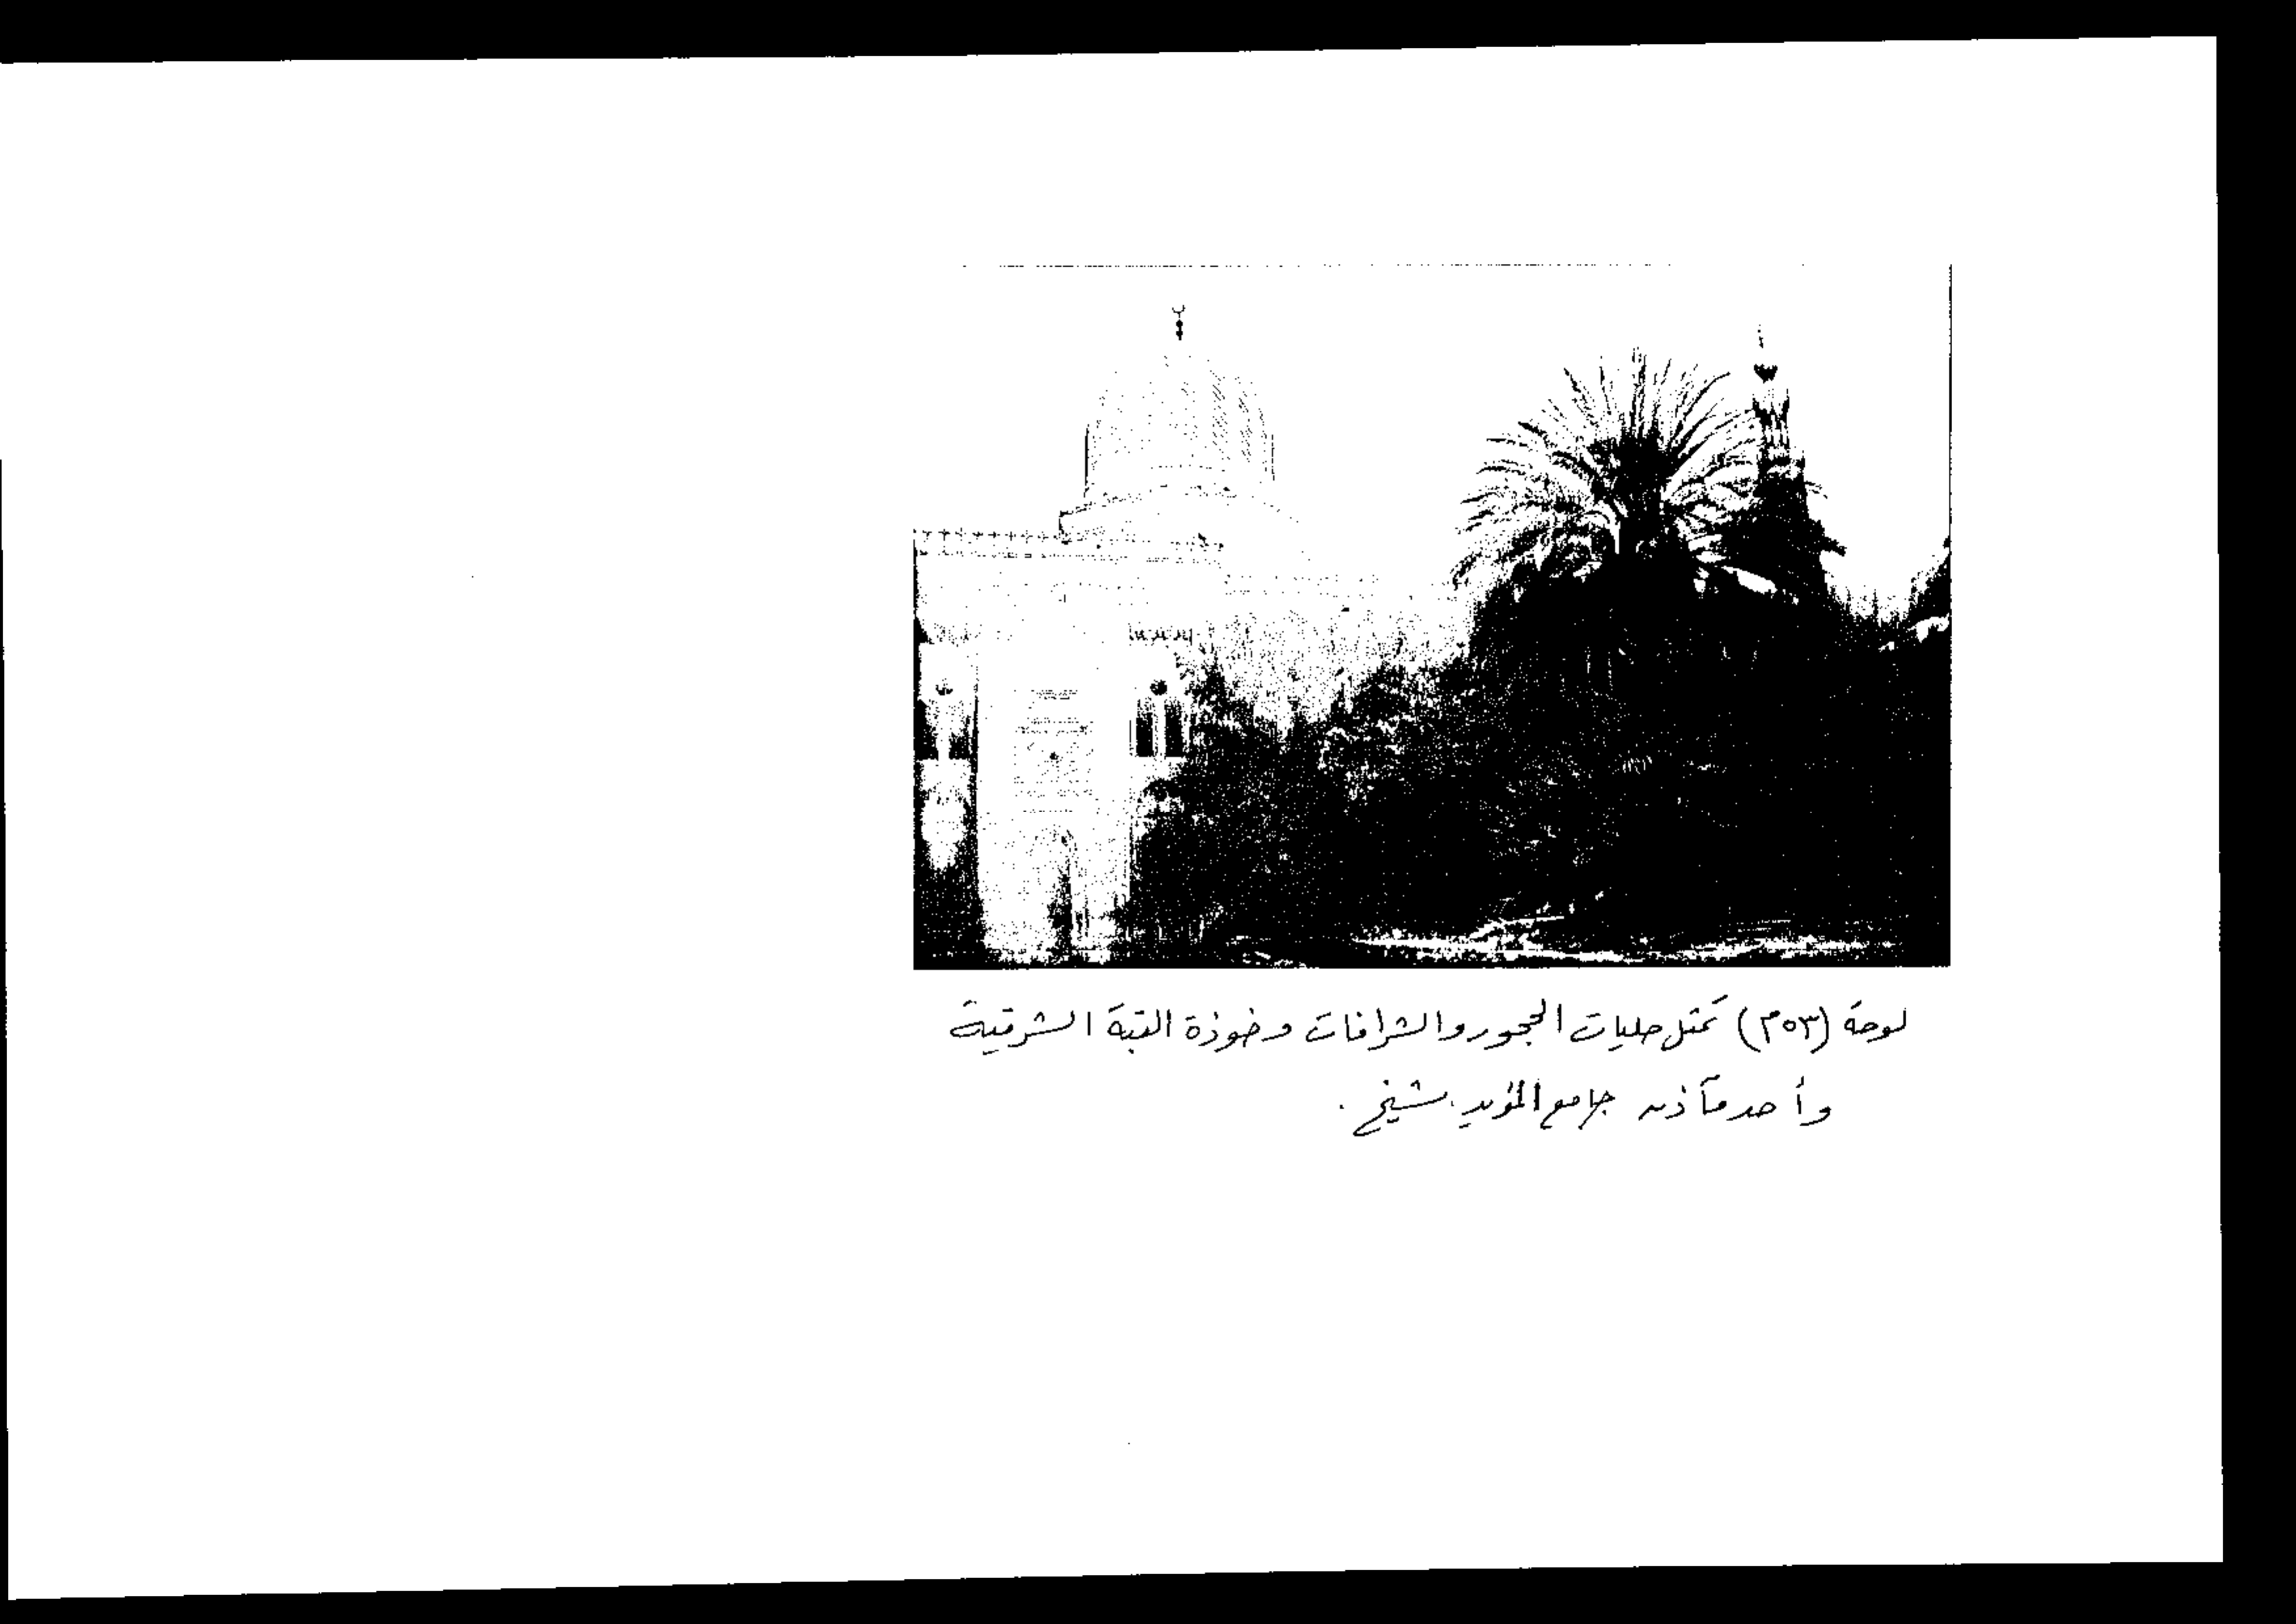 لوحة (٣٥٣) تمثل حليات الجحور والشرافات وخوذة القبة الشرقية
وأحد مآذن جامع المؤيد شيخ .